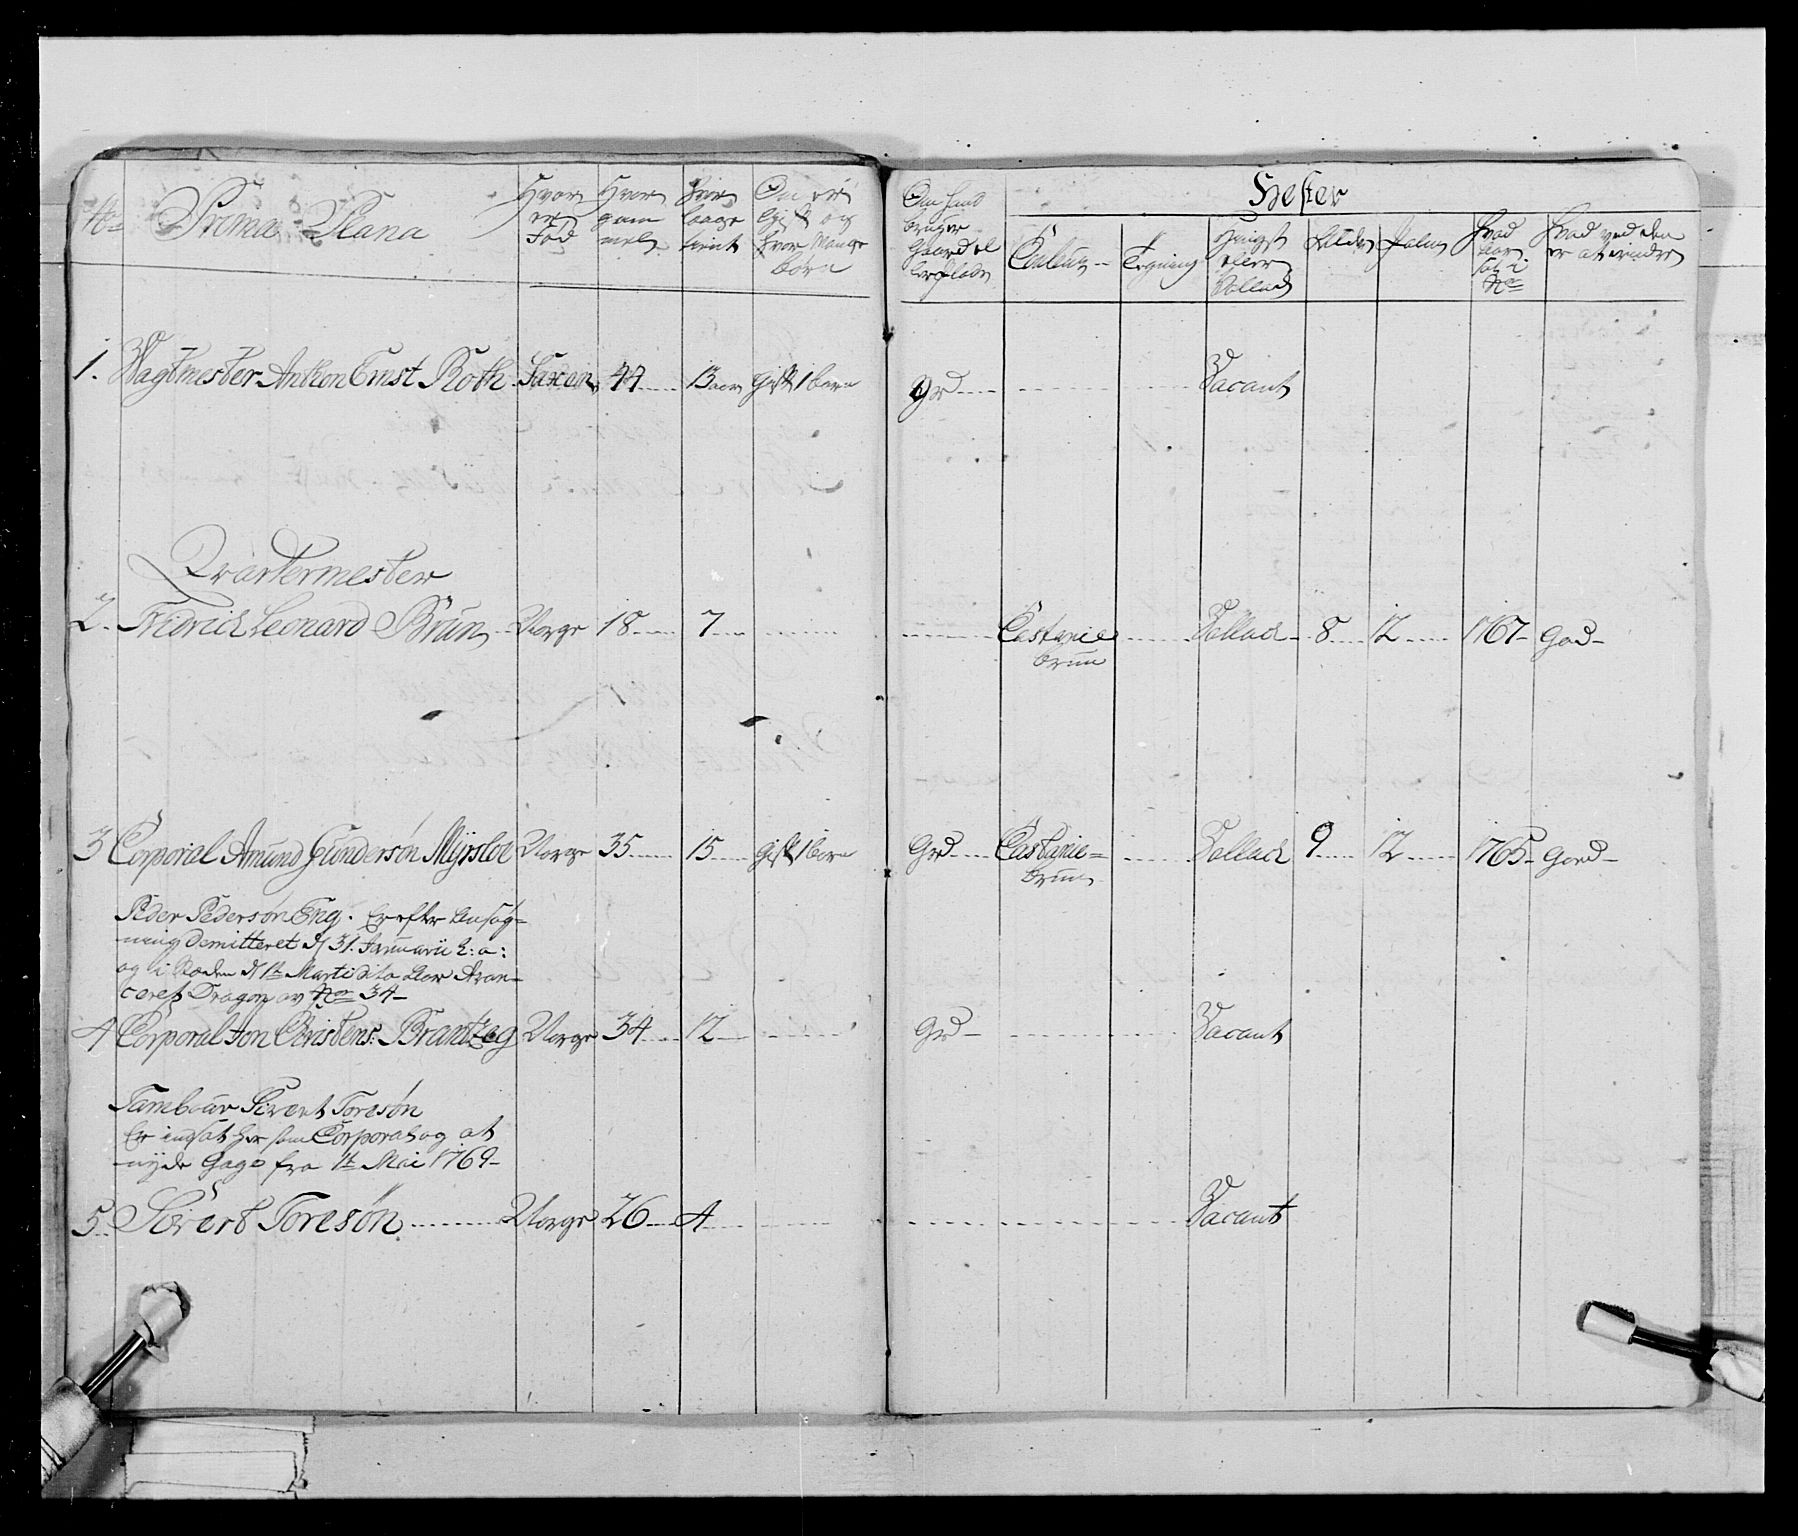 No Prima Plana
Hvor er Fød
Hvor gam mel
Hvor lange tient
Om er gift og hvor Mange børn
Om hand bruger Gaard el
Hester
Couleur
Tegning
Hingst eller Vallack
Alder
Palm
Hvad Aar sat i No
Hvad ved den er at erindre
1. Wagtmester Anthon Ernst Roth Saxen 44 13 aar gift 1 barn Grd Vacant
Qvartermester
2. Fridrich Leonard Brun Norge 18 7 Castanie brun Vallack 8 12 1767 God
3 Corporal Amund Gundersøn Myrsloe Norge 35 15 gift 1 barn Grd Castanie= brun Vallack 9 12 1765 Goed
Peder Pedersøn Eng. Er efter Ansøg=
ning Demitteret d 31. Januarii h: a:
og i Stæden d 1t Marti dito Aar Avan=
ceret Dragon av No 34
4 Corporal Jon Christens: Brantzeg Norge 34 12 Grd Vacant
Tambour Sivert Toresøn
Er indsat her som Corporal og at
nyde Gage fra 1t Mai 1769
5. Sivert Toresøn Norge 26 4 Vacant